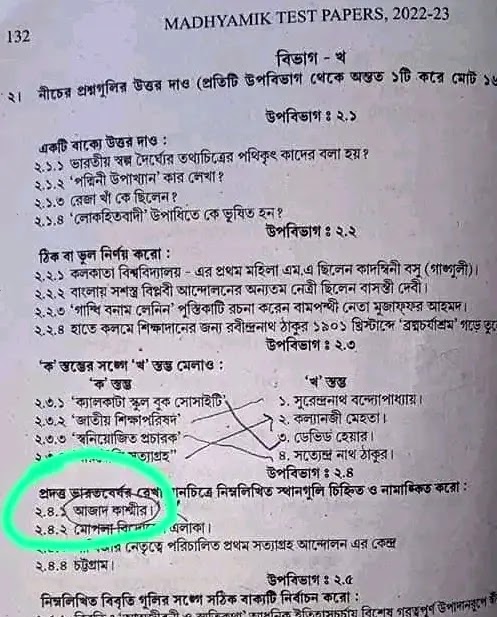 132
MADHYAMIK TEST PAPERS, 2022-23
বিভাগ - খ
২। নীচের প্রশ্নগুলির উত্তর দাও (প্রতিটি উপবিভাগ থেকে অন্তত ১টি করে মোট ১৬
উপবিভাগ : ২.১
একটি বাক্যে উত্তর দাও :
২.১.১ ভারতীয় স্বল্প দৈর্ঘ্যের তথ্যচিত্রের পথিকৃৎ কাদের বলা হয়?
২.১.২ 'পদ্মিনী উপাখ্যান' কার লেখা?
২.১.৩ রেজা খাঁ কে ছিলেন?
২.১.৪ 'লোকহিতবাদী' উপাধিতে কে ভূষিত হন?
উপবিভাগ : ২.২
ঠিক বা ভুল নির্ণয় করো :
২.২.১ কলকাতা বিশ্ববিদ্যালয় - এর প্রথম মহিলা এম.এ ছিলেন কাদম্বিনী বসু (গাঙ্গুলী)।
২.২.২ বাংলায় সশস্ত্র বিপ্লবী আন্দোলনের অন্যতম নেত্রী ছিলেন বাসন্তী দেবী।
২.২.৩ 'গান্ধি বনাম লেনিন' পুস্তিকাটি রচনা করেন বামপন্থী নেতা মুজাফফর আহমদ।
২.২.৪ হাতে কলমে শিক্ষাদানের জন্য রবীন্দ্রনাথ ঠাকুর ১৯০১ খ্রিস্টাব্দে 'ব্রহ্মচর্যাশ্রম' গড়ে
উপবিভাগ : ২.৩
'ক' স্তম্ভের সঙ্গে 'খ' স্তম্ভ মেলাও :
'ক' স্তম্ভ 'খ' স্তম্ভ
২.৩.১ 'ক্যালকাটা স্কুল বুক সোসাইটি' ১. সুরেন্দ্রনাথ বন্দ্যোপাধ্যায়।
২.৩.২ 'জাতীয় শিক্ষাপরিষদ' ২. কল্যানজী মেহতা।
২.৩.৩ 'স্বনিয়োজিত প্রচারক' ৩. ডেভিড হেয়ার।
সত্যাগ্রহ" ৪. সত্যেন্দ্র নাথ ঠাকুর।
উপবিভাগ : ২.৪
প্রদত্ত ভারতবর্ষের রেখা মানচিত্রে নিম্নলিখিত স্থানগুলি চিহ্নিত ও নামাঙ্কিত করো :
২.৪.১ আজাদ কাশ্মীর।
২.৪.২ মোপলা এলাকা।
নেতৃত্বে পরিচালিত প্রথম সত্যাগ্রহ আন্দোলন এর কেন্দ্র
২.৪.৪ চট্টগ্রাম।
উপবিভাগ : ২.৫
নিম্নলিখিত বিবৃতি গুলির সঙ্গে সঠিক ব্যাখ্যাটি নির্বাচন করো :